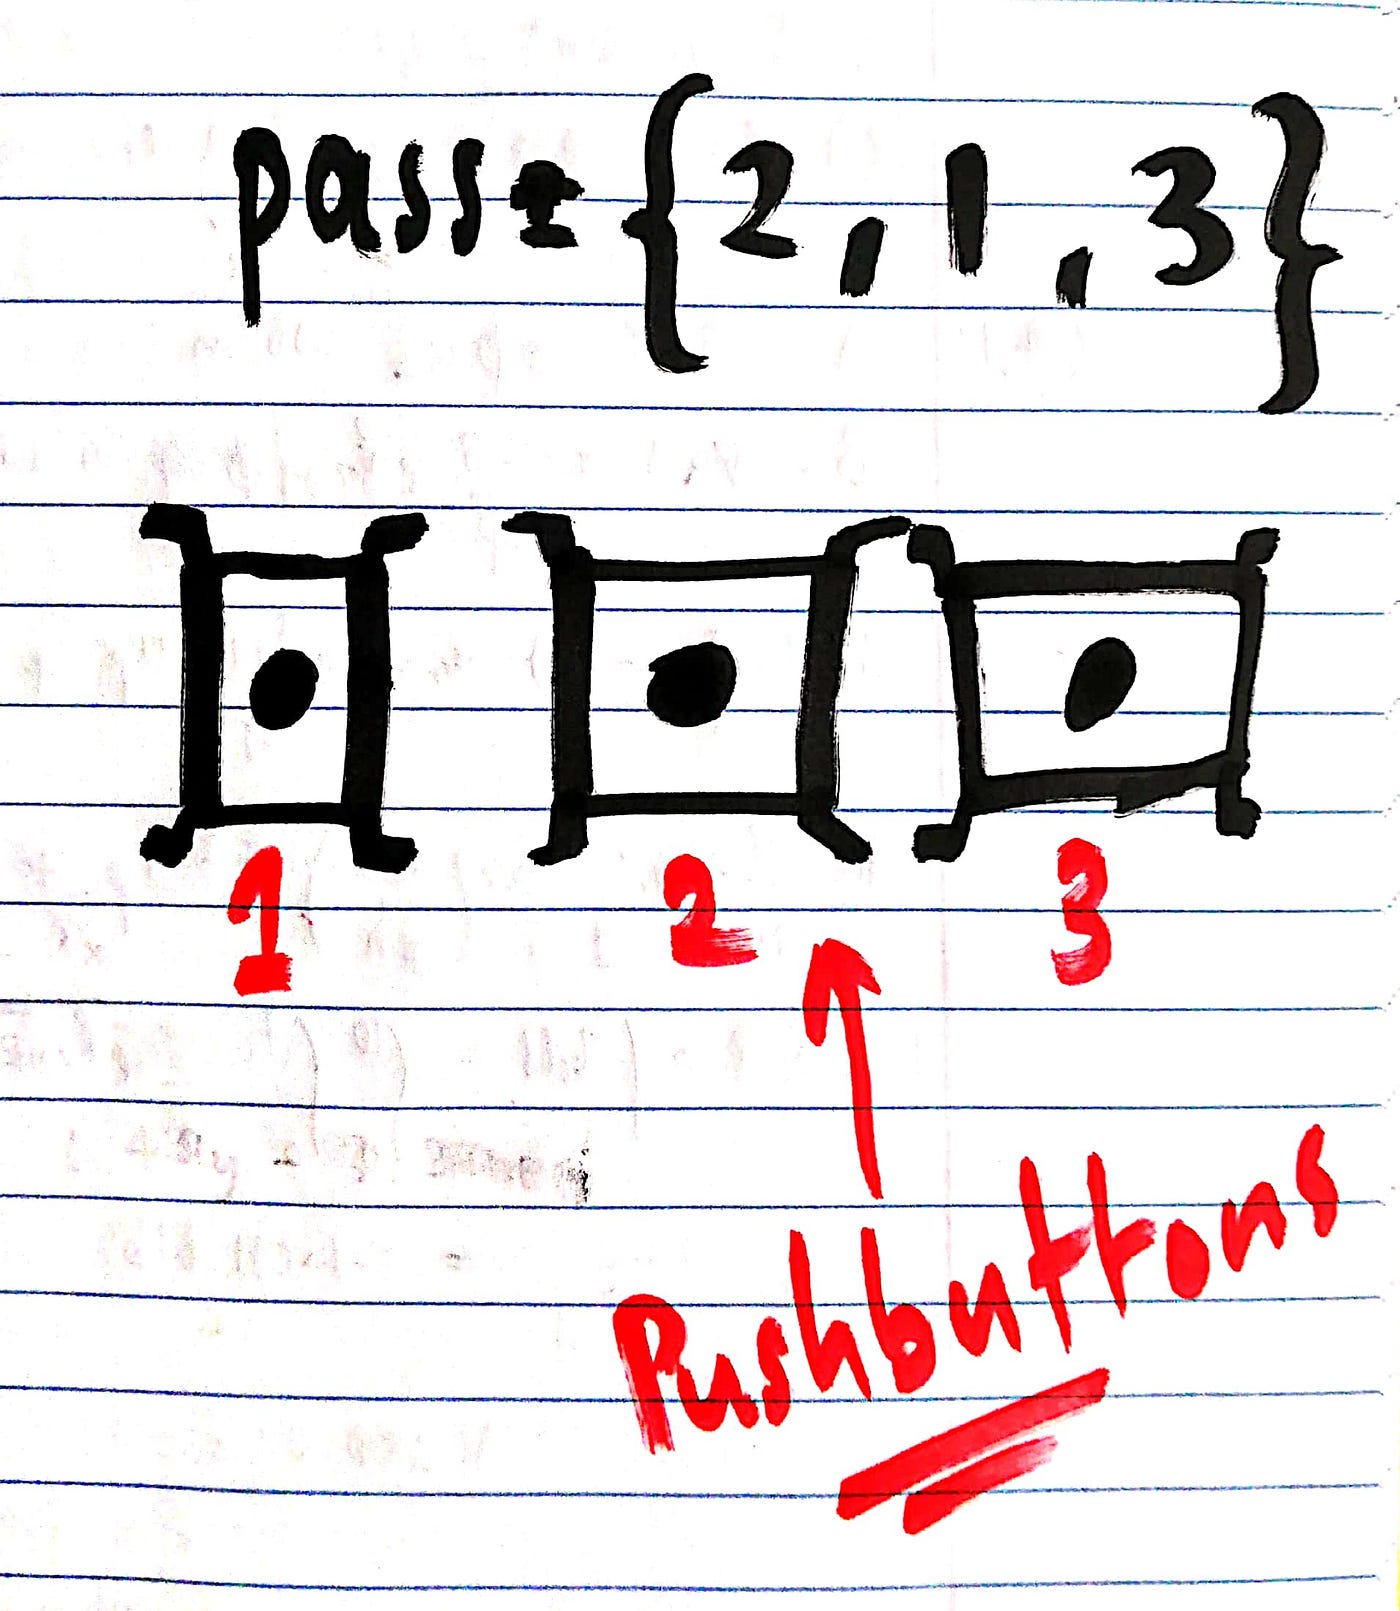 pass = {2, 1, 3}
1 2 3
Pushbuttons